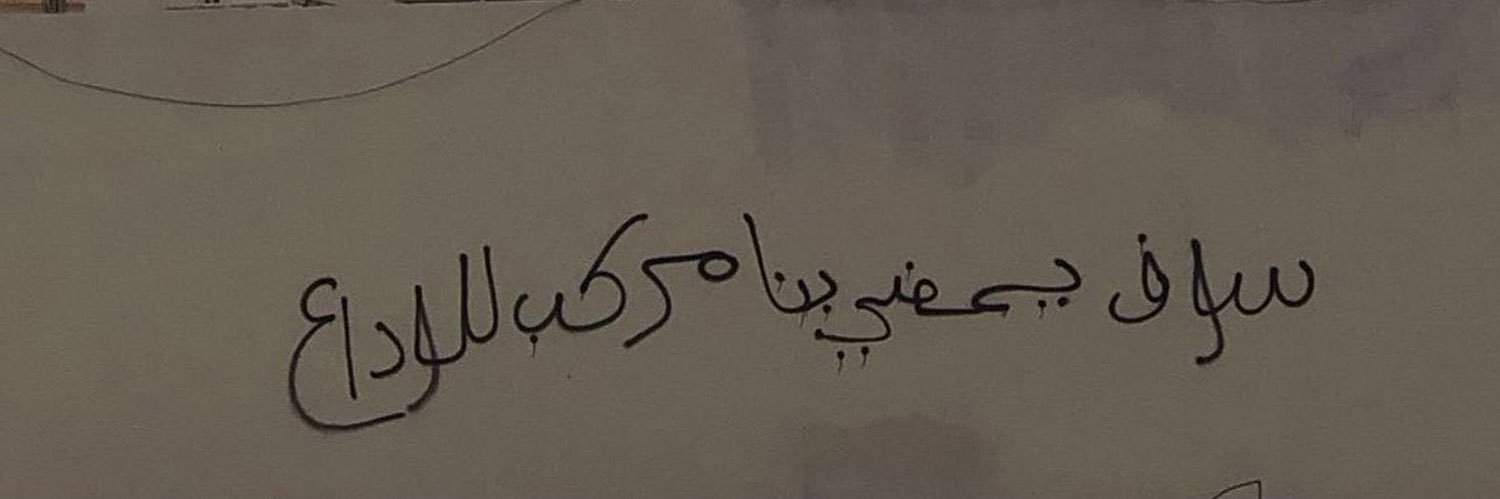 سوف يمضي بنا مركب للوداع